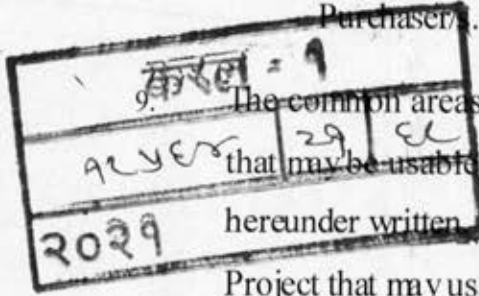 Purchaser/s.
करल - १
9. The common areas
२१ ६८
that may be usable
२०२१
hereunder written.
Project that may us